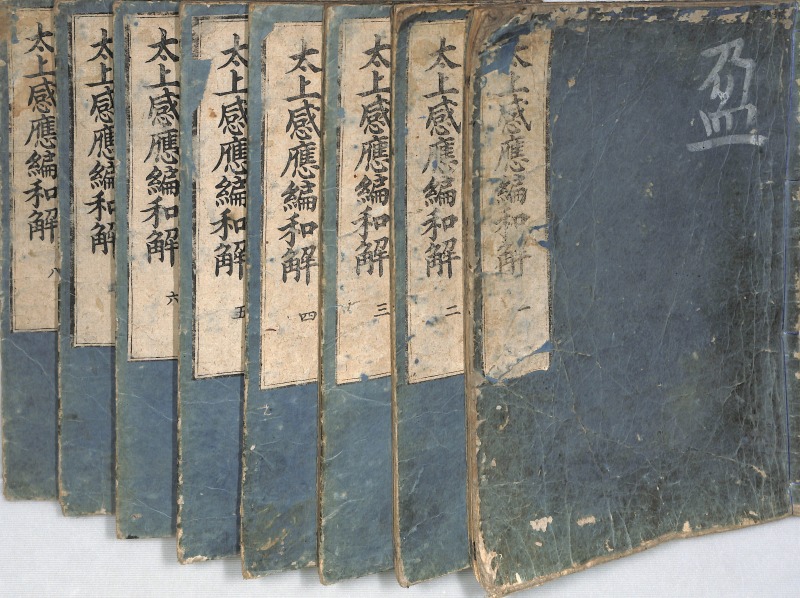 盈
太上感應編和解 一
太上感應編和解 二
太上感應編和解 三
太上感應編和解 四
太上感應編和解 五
太上感應編和解 六
太上感應編和解
太上感應編和解 八